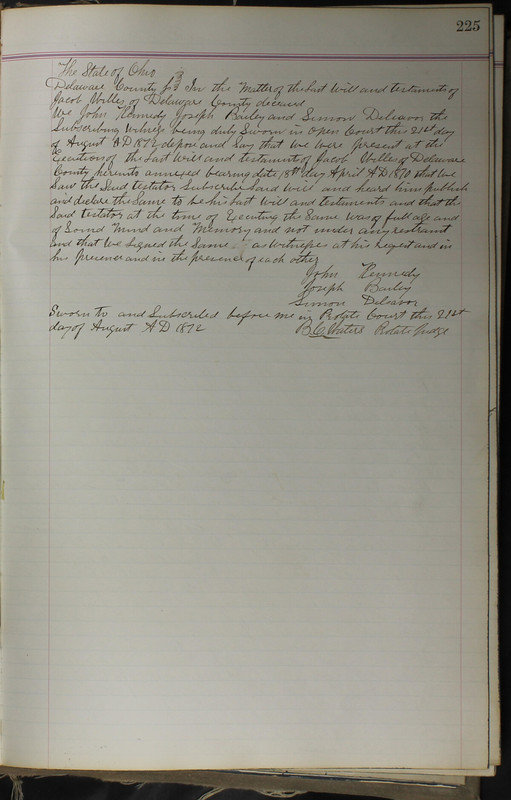 225
The State of Ohio
Delaware County ss In the Matter of the Last Will and testament of
Jacob Willes of Delaware County deceased
We John Kennedy Joseph Bailey and Simon Delavor the
Subscribing Witneses being duly Sworn in Open Court this 21st day
of August A D 1872 depose and Say that We Were present at the
Execution of the Last Will and testament of Jacob Willes of Delaware
County hereunto annexed bearing date 18th day April A D 1870 that We
Saw the Said testator Subscribe Said Will and heard him publish
and declare the Same to be his Last Will and testament and that the
Said testator at the time of Executing the Same Was of full age and
of Sound Mind and Memory and not under any restraint
and that We Signed the Same as Witneses at his request and in
his Presence and in the presence of each other
John Kennedy
Joseph Bailey
Simon Delavor
Sworn to and Subscribed before me in Probate Court this 21st
day of August A D 1872 B. C. Waters Probate Judge